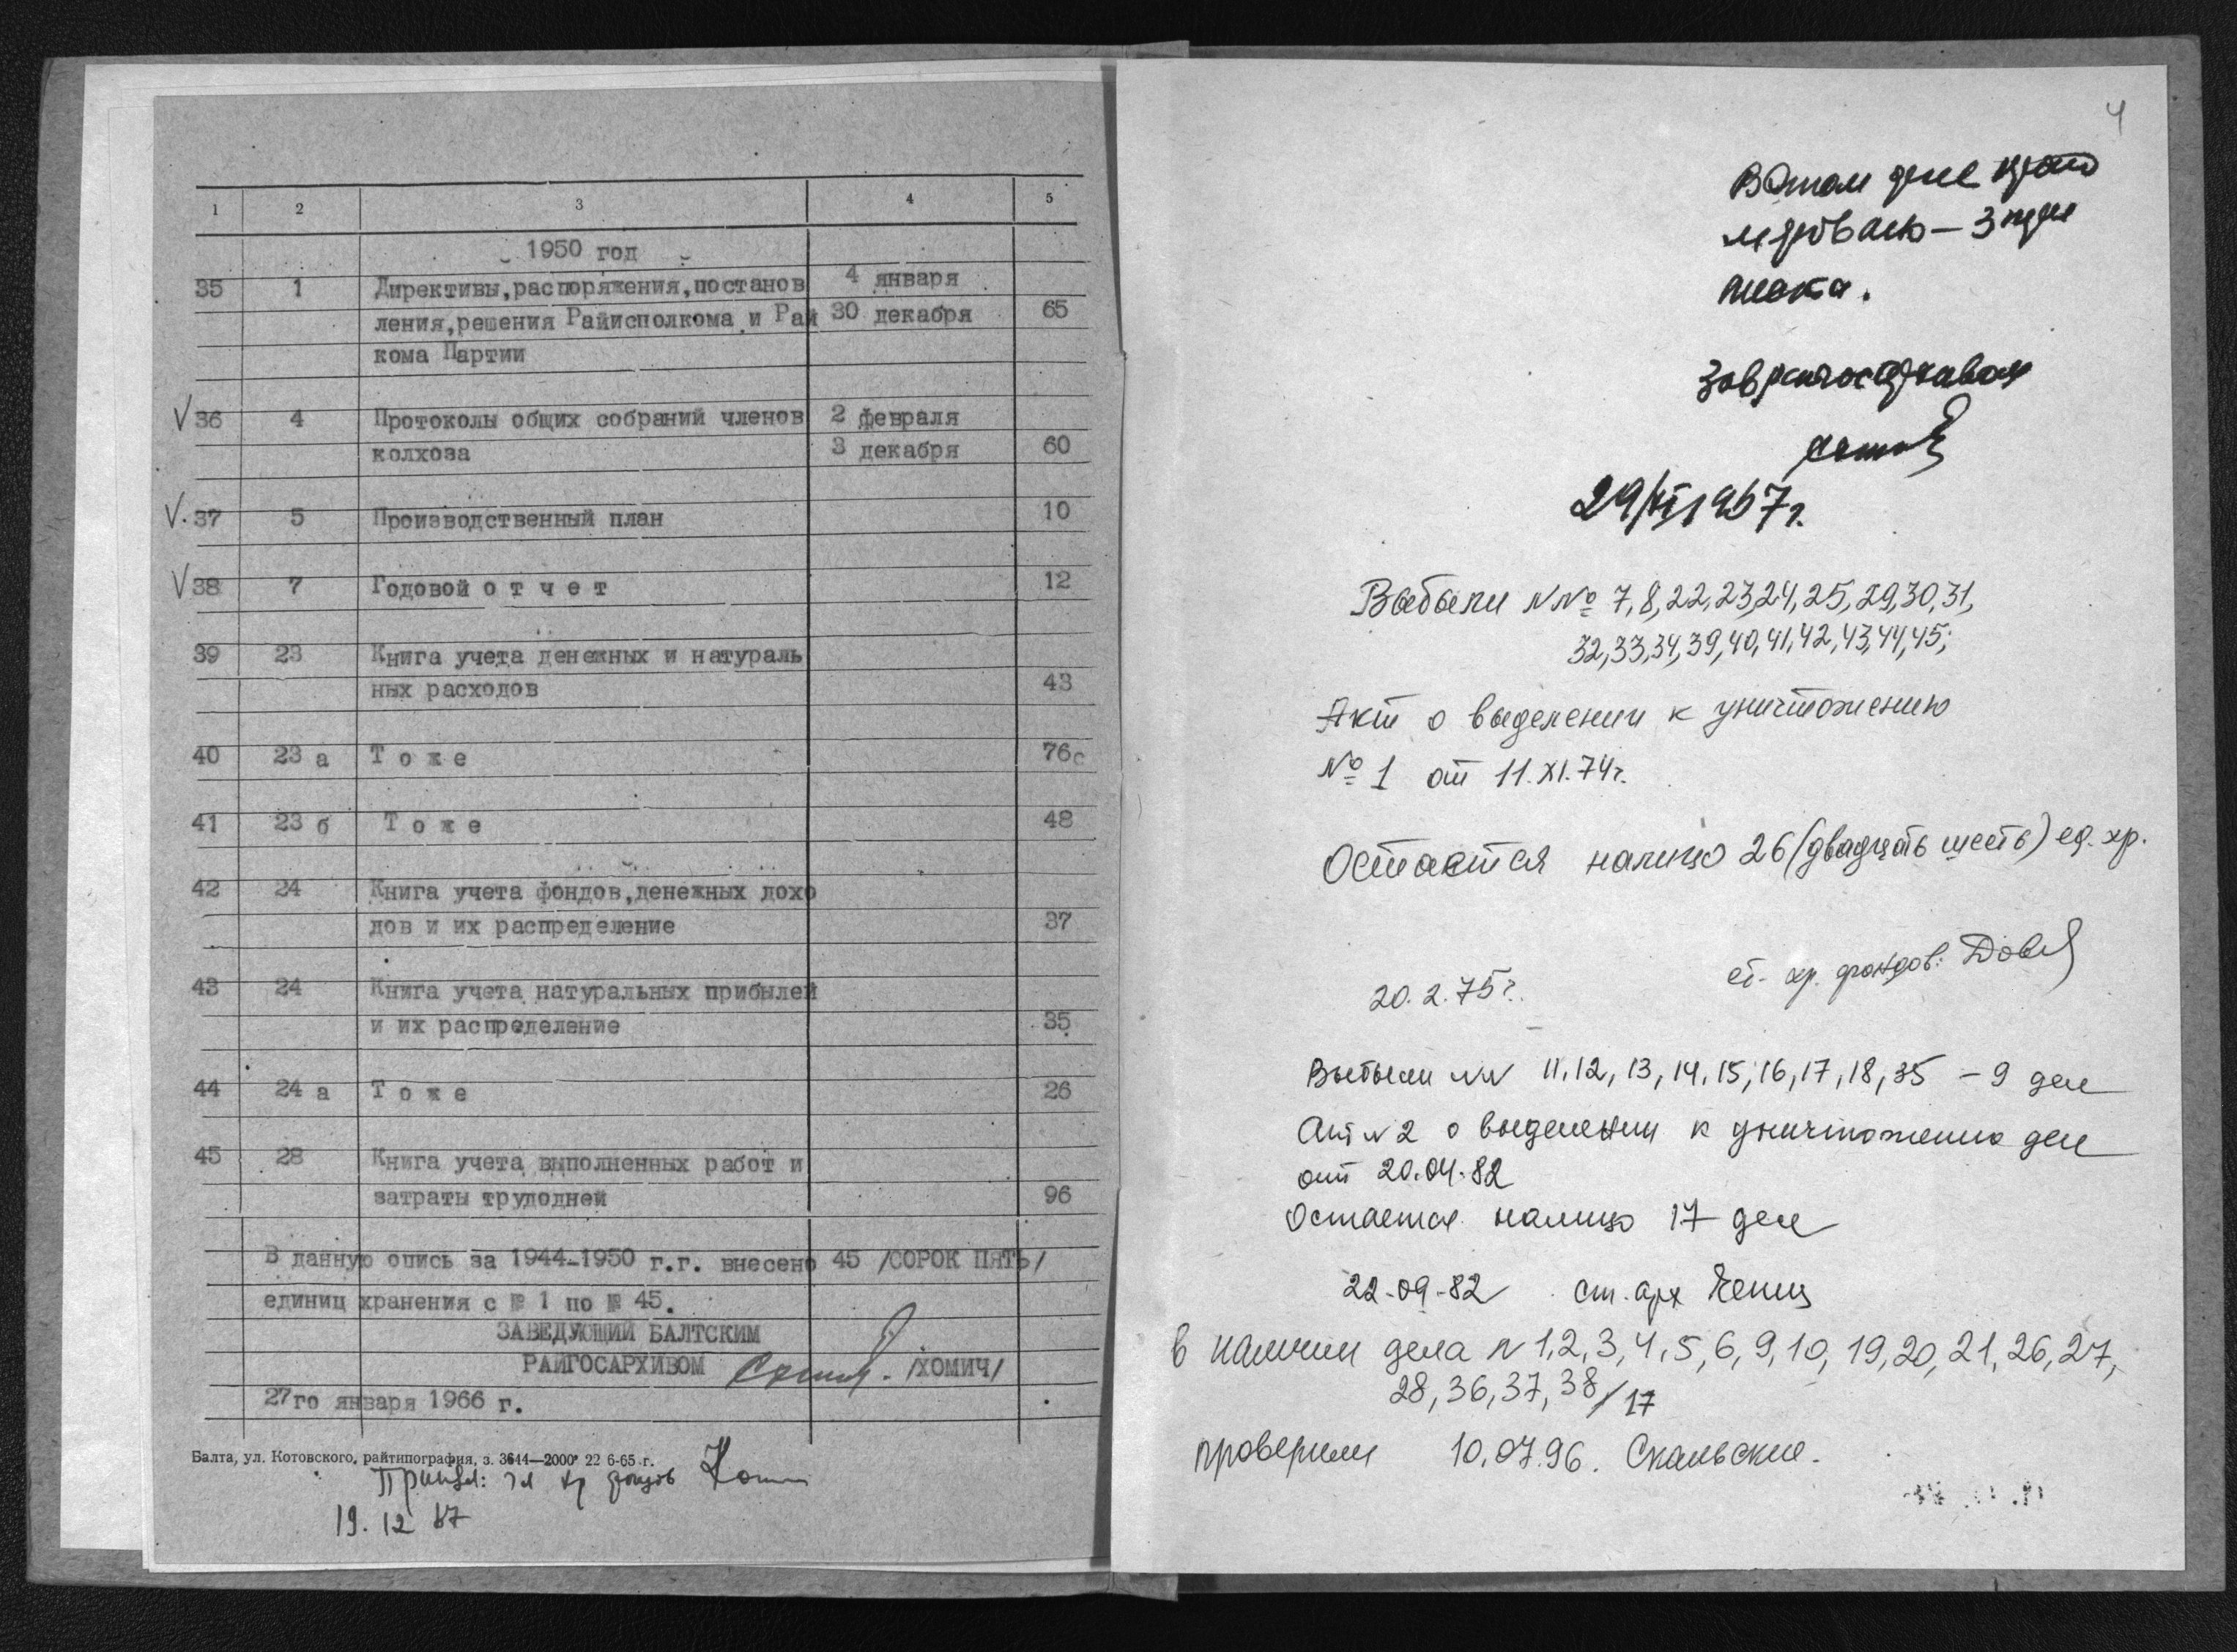 1 2 3 4 5
1950 год
35 1 Директивы,распоряжения,постанов 4 января
ления,решения Райисполкома и Рай 30 декабря 65
кома Партии
V 36 4 Протоколы общих собраний членов 2 февраля
колхоза 3 декабря 60
V. 37 5 Производственный план 10
V 38 7 Годовой о т ч е т 12
39 23 Книга учета денежных и натураль
ных расходов 43
40 23 а Т о ж е 76с
41 23 б Т о ж е 48
42 24 Книга учета фондов,денежных дохо
дов и их распределение 37
43 24 Книга учета натуральных прибылей
и их распределение 35
44 24 а Т о ж е 26
45 28 Книга учета выполненных работ и
затраты трудодней 96
В данную опись за 1944-1950 г.г. внесено 45 /СОРОК ПЯТЬ/
единиц хранения с № 1 по № 45.
ЗАВЕДУЮЩИЙ БАЛТСКИМ
РАЙГОСАРХИВОМ /ХОМИЧ/
27го января 1966 г.
Балта, ул. Котовского, райтипография, з. 3644—2000 22 6-65 г.
19. 12 87
4
В этом деле прону
меровано – 3 три
листа.
Зав райгосархивом
29/XI 1967 г.
Выбыли №№ 7,8,22,23,24,25,29,30,31,
32,33,34,39,40,41,42,43,44,45;
Акт о выделении к уничтожению
№ 1 от 11.XI.74г.
Остается налицо 26 (двадцать шесть) ед. хр.
20.2.75г. ст. хр. фондов:
Выбыли NN 11,12,13,14,15,16,17,18,35 – 9 дел
Акт N 2 о выделении к уничтожению дел
от 20.04.82
Остается налицо 17 дел
22-09-82 ст. арх
в наличии дела N 1,2,3,4,5,6,9,10,19,20,21,26,27,
28,36,37,38/17
проверили 10.07.96.